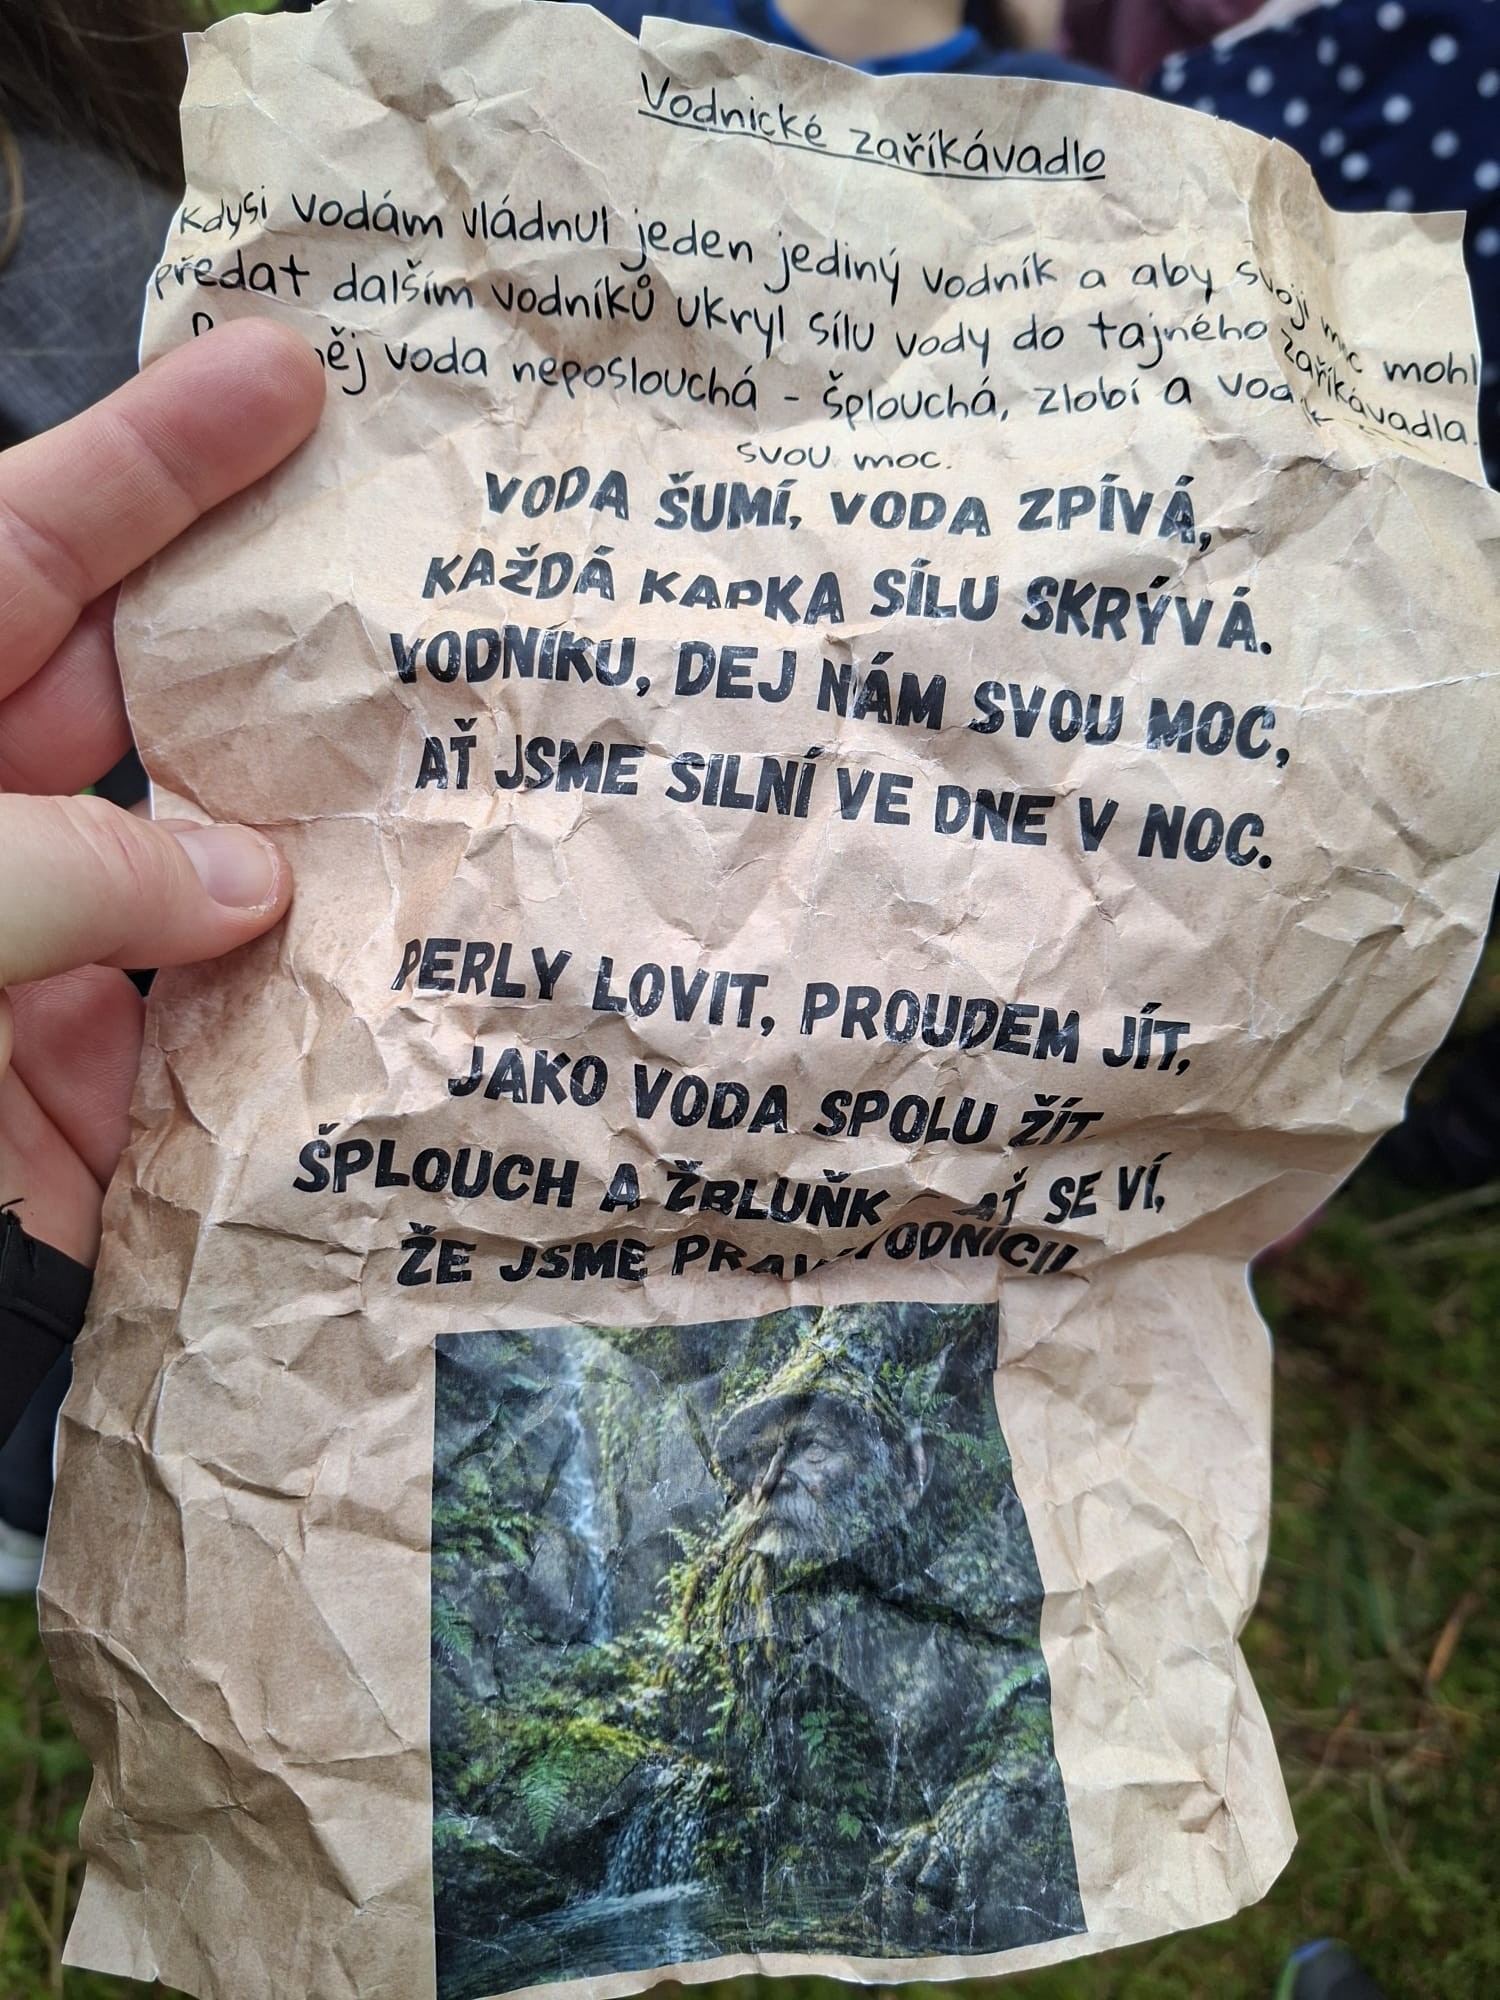 Vodnické zaříkávadlo
Kdysi vodám vládnul jeden jediný vodník a aby svoji moc mohl
předat dalším vodníků ukryl sílu vody do tajného zaříkávadla.
voda neposlouchá - šplouchá, zlobí a
svou moc.
VODA ŠUMÍ, VODA ZPÍVÁ,
KAŽDÁ KAPKA SÍLU SKRÝVÁ.
VODNÍKU, DEJ NÁM SVOU MOC,
AŤ JSME SILNÍ VE DNE V NOC.
PERLY LOVIT, PROUDEM JÍT,
JAKO VODA SPOLU ŽÍT
ŠPLOUCH A ŽBLUŇK AŤ SE VÍ,
ŽE JSME VODNÍCI!